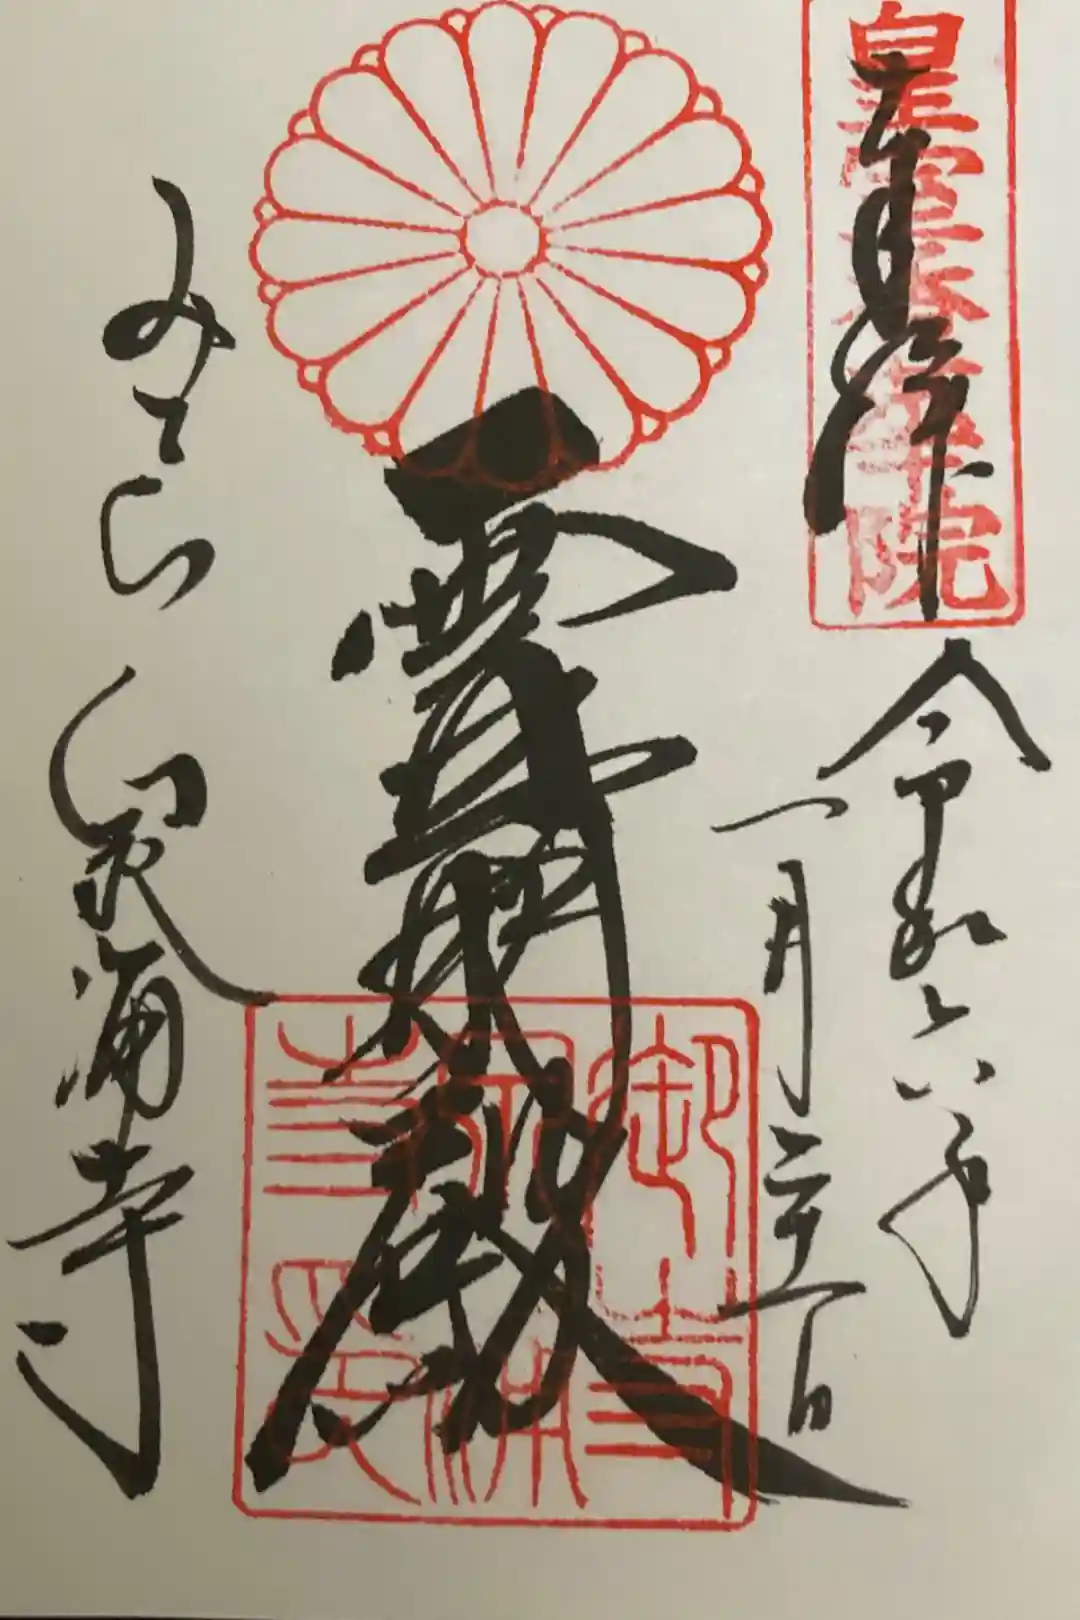 皇室香華院
奉拝
令和六年
一月二十一日
霊明殿
御寺
泉涌
寺印
みてら
泉涌寺